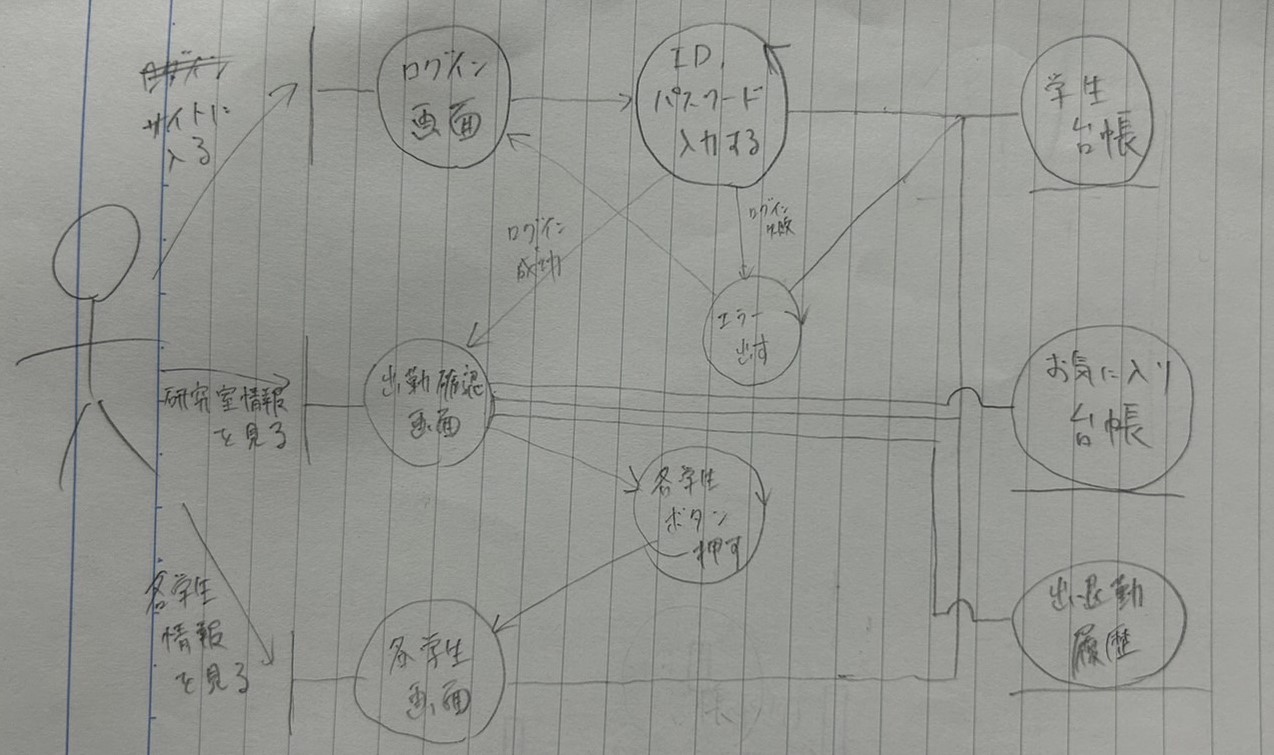 サイトに
入る
ログイン
画面
ID,
パスワード
入力する
学生
台帳
ログイン
成功
ログイン
失敗
エラー
出す
研究室情報
を見る
出勤確認
画面
お気に入り
台帳
各学生
ボタン
押す
各学生
情報
を見る
各学生
画面
出退勤
履歴